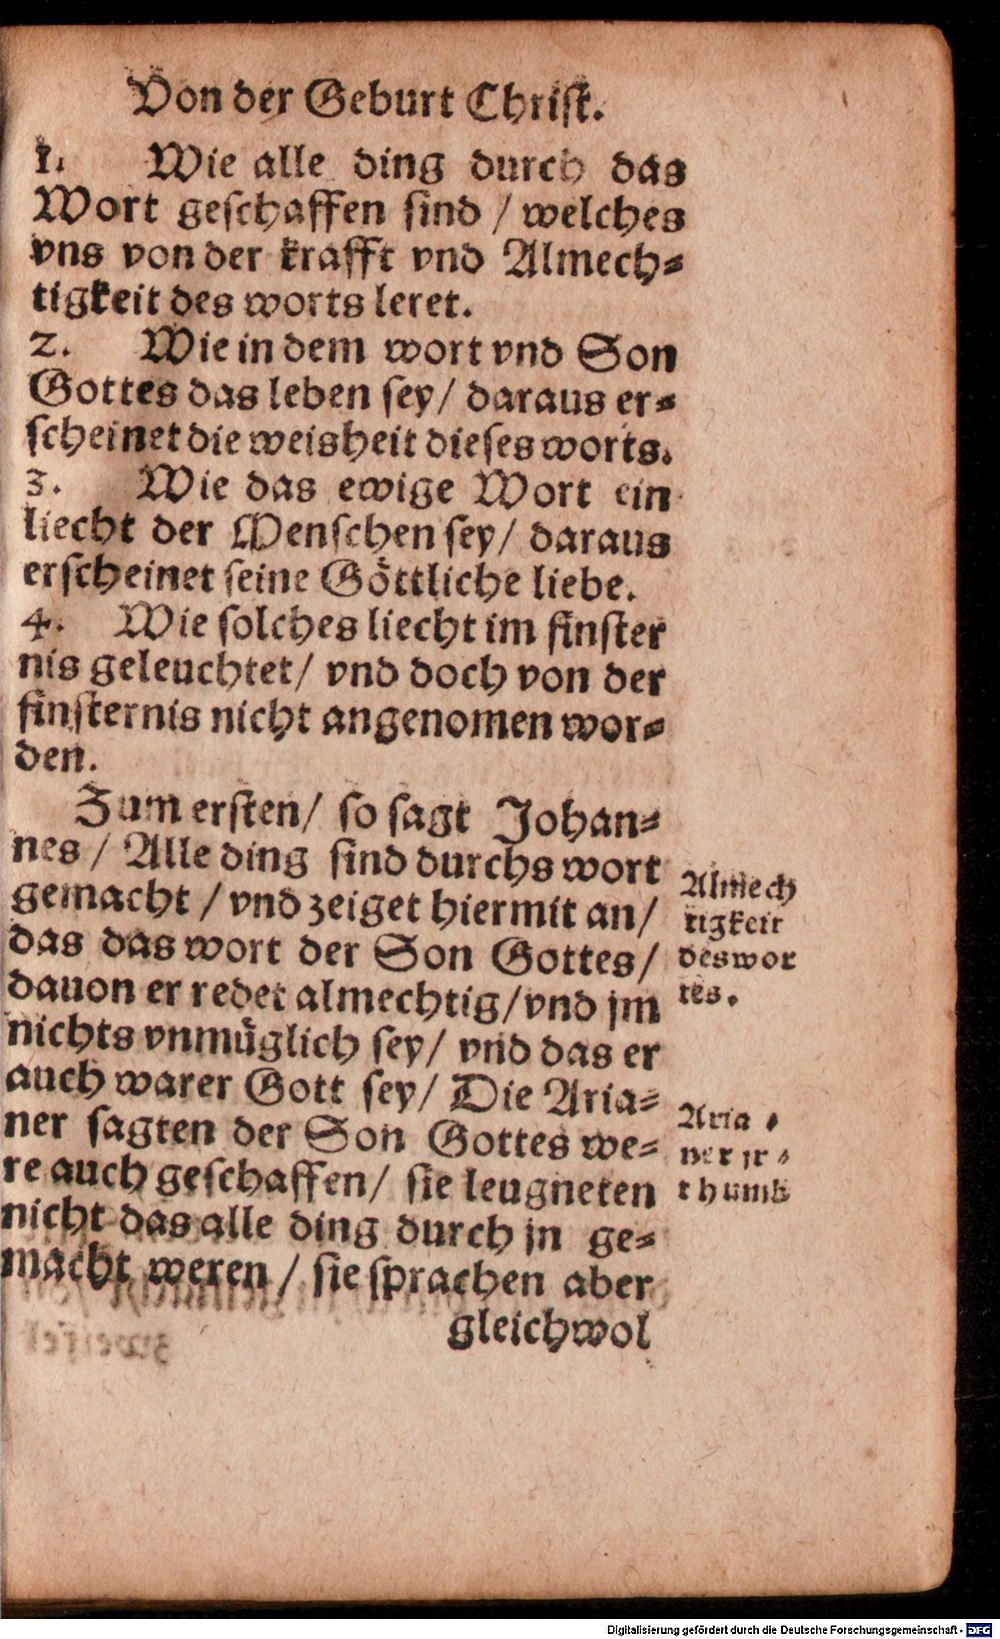 Von der Geburt Christ.
1. Wie alle ding durch das
Wort geschaffen sind / welches
vns von der krafft vnd Almech-
tigkeit des worts leret.
2. Wie in dem wort vnd Son
Gottes das leben sey / daraus er-
scheinet die weisheit dieses worts.
3. Wie das ewige Wort ein
liecht der Menschen sey / daraus
erscheinet seine Göttliche liebe.
4. Wie solches liecht im finster
nis geleuchtet / vnd doch von der
finsternis nicht angenomen wor-
den.
Zum ersten / so sagt Johan-
nes / Alle ding sind durchs wort
gemacht / vnd zeiget hiermit an /
das das wort der Son Gottes /
dauon er redet almechtig / vnd jm
nichts vnmüglich sey / vnd das er
auch warer Gott sey / Die Aria-
ner sagten der Son Gottes we-
re auch geschaffen / sie leugneten
nicht das alle ding durch jn ge-
macht weren / sie sprachen aber
gleichwol
Almech
tigkeit
des wor
tes.
Aria-
ner jr-
thumb
Digitalisierung gefördert durch die Deutsche Forschungsgemeinschaft - DFG